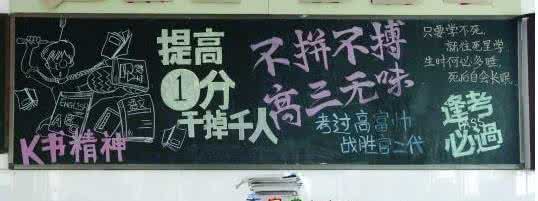 ENGLISH
K书精神
提高
1分
干掉千人
不拼不搏
高三无味
考过高富帅
战胜富二代
只要学不死,
就往死里学
生时何必多睡,
死后自会长眠
逢考
必過